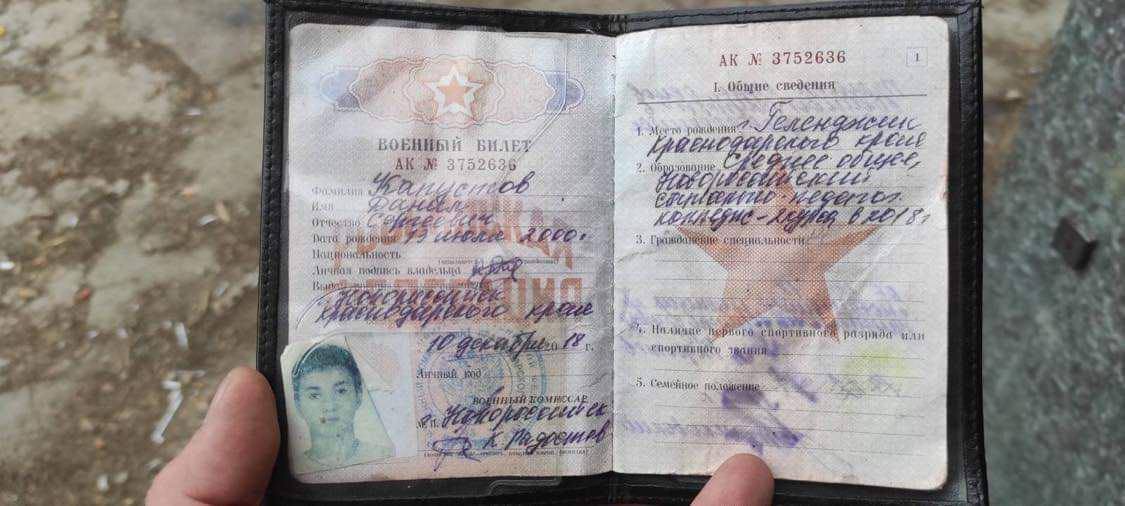 ВОЕННЫЙ БИЛЕТ
АК № 3752636
Фамилия Капустков
Имя Данил
Отчество Сергеевич
Дата рождения 13 июля 2000г
Национальность
Личная подпись владельца
Новороссийск
Краснодарского края
10 декабря 2018 г.
Личный код
ВОЕННЫЙ КОМИССАР
М.П. г. Новороссийск
К Радостков
АК № 3752636
1
I. Общие сведения
1. Место рождения г. Геленджик
Краснодарского края
2. Образование Среднее общее,
Новороссийский
социально-педагог.
колледж - в 2018г
3. Гражданские специальности
4. Наличие первого спортивного разряда или
спортивного звания
5. Семейное положение